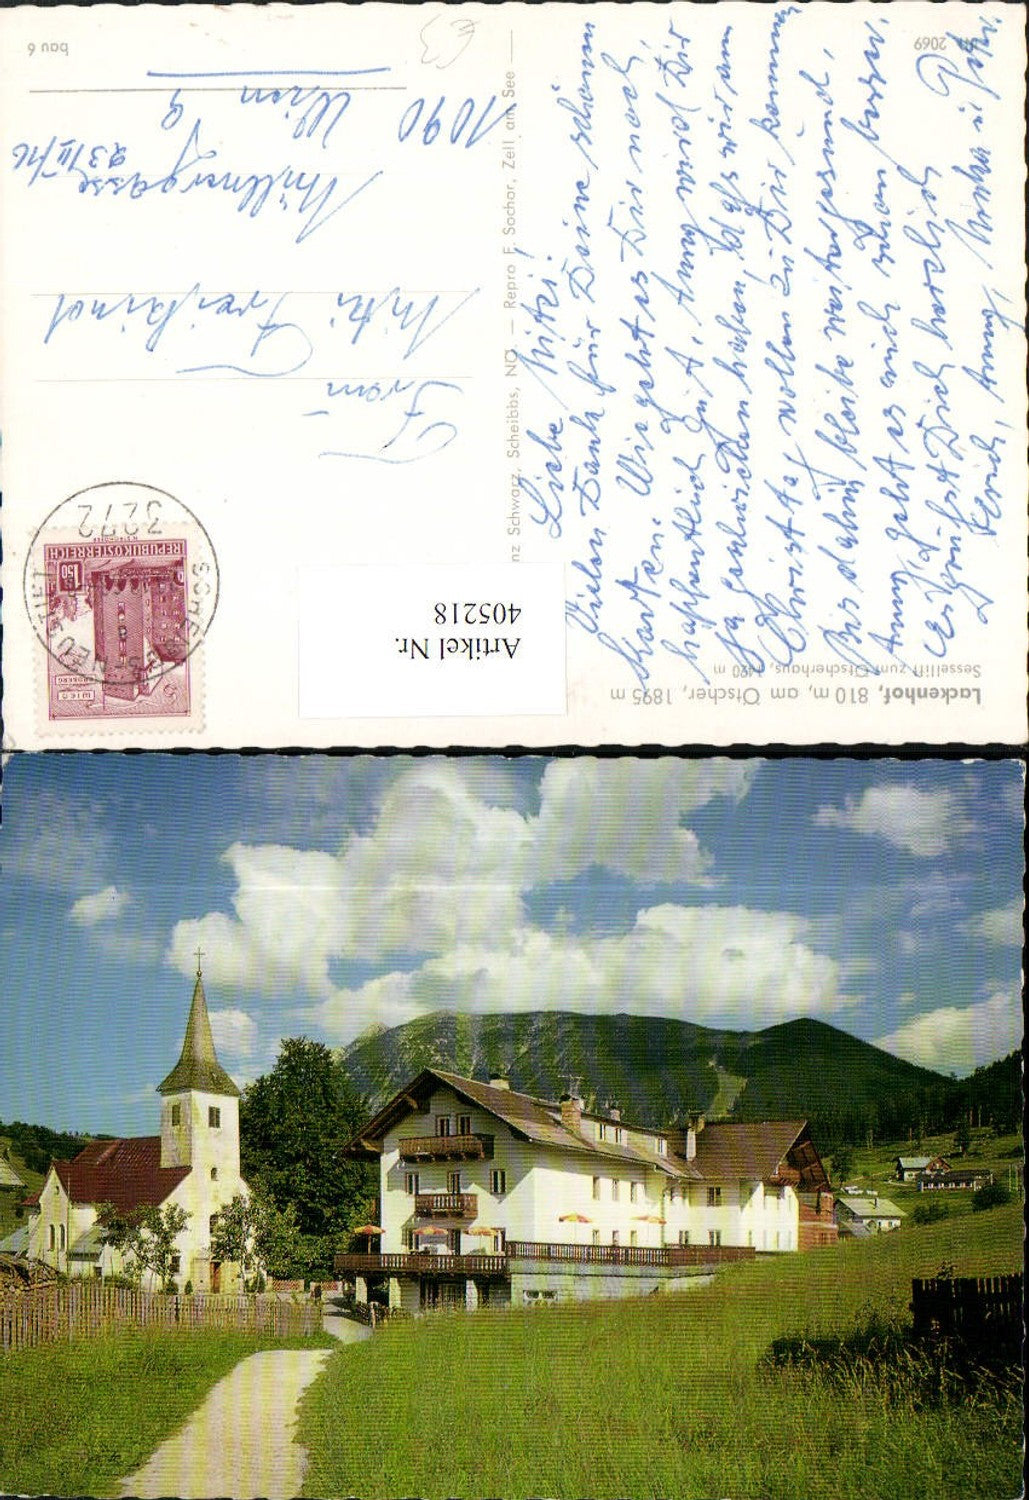 Lackenhof, 810 m, am Ötscher, 1895 m
Sessellift zum Ötscherhaus, 1420 m
Liebe Mitzi!
Vielen Dank für Deine schönen
Karten. Wie geht es Dir noch
hoffentlich gut, Anny wird Dir
ja geschrieben haben, daß wir am
Christtag wollen zu Dir kommen
Bis dahin bleibe weiter gesund,
Anny geht es auch schon besser.
Es grüßt Dich herzlich
Anna,
Artikel Nr.
405218
nz Schwarz, Scheibbs, NÖ. — Repro F. Sochor, Zell am See
REPUBLIK ÖSTERREICH
1.50
WIEN
3272
SCHEIBBS-NEUSTIFT
Frau
Mitzi
Müllnergasse
23/II/16
1090 Wien 9
bau 6
2069
€3